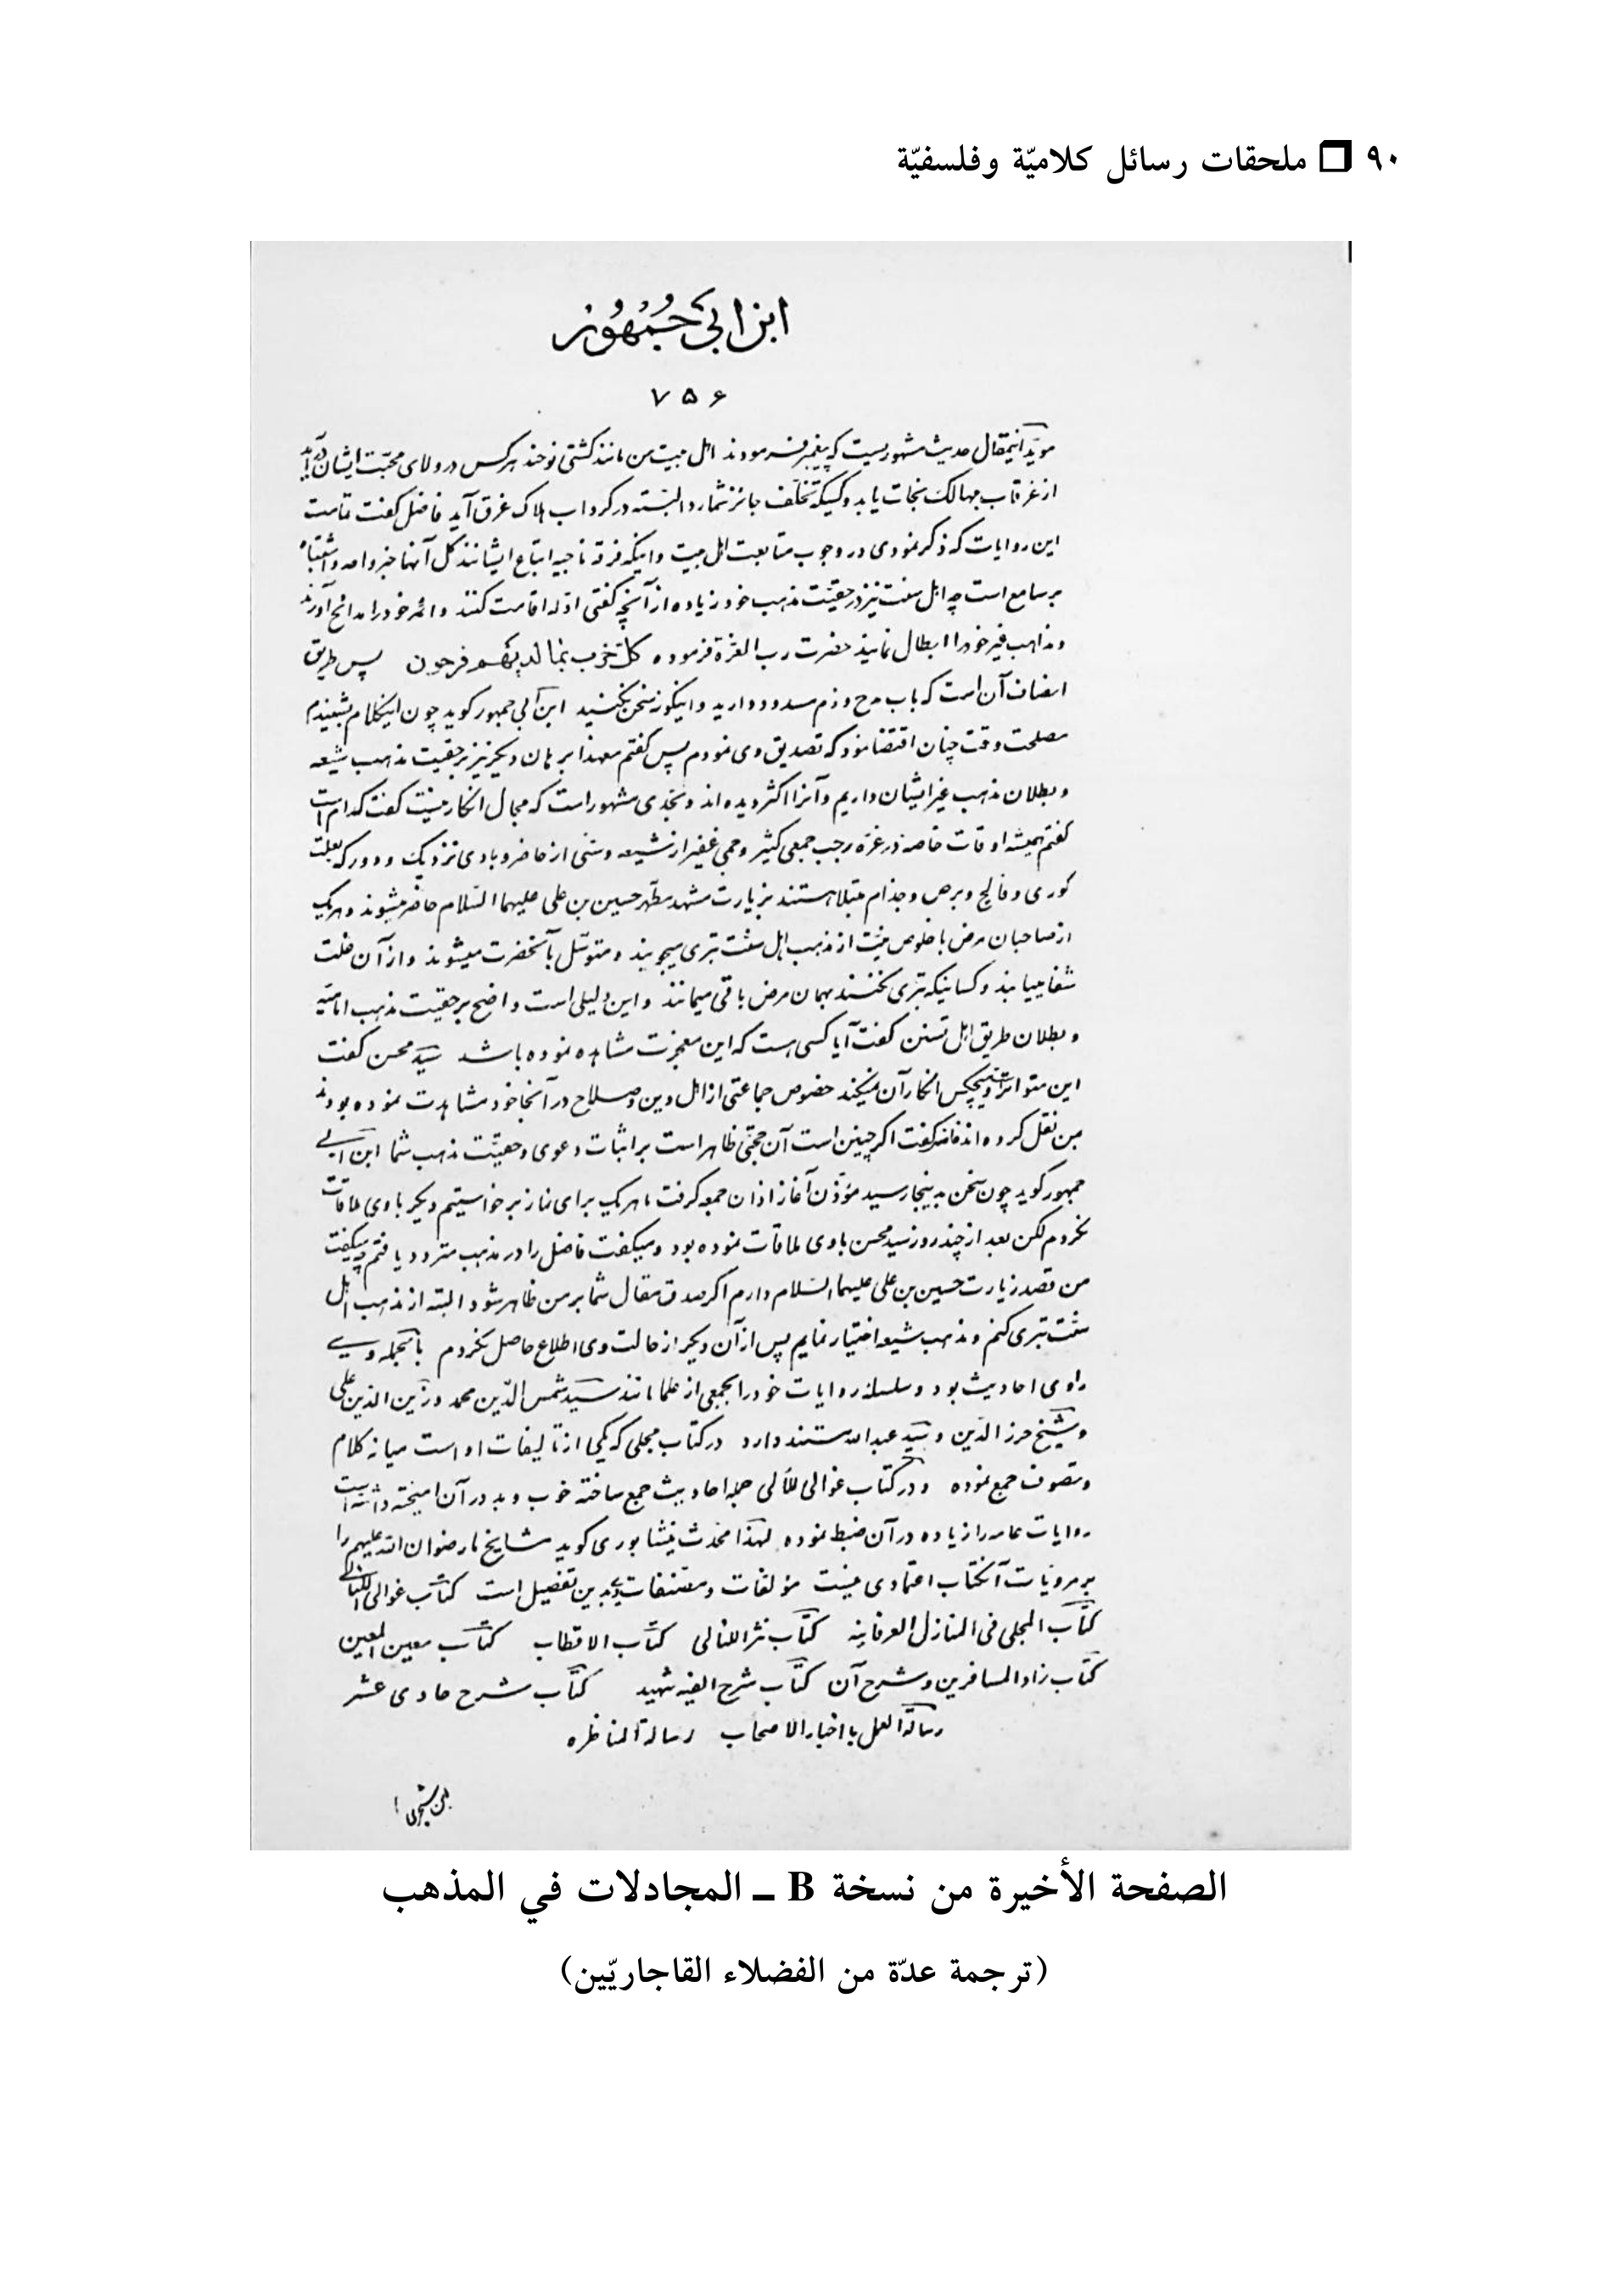 ٩٠ ❒ ملحقات رسائل كلاميّة وفلسفيّة
ابن ابی جُمهُور
۷۵۶
مویّد اینمقال حدیث مشهوریست که پیغمبر فرمودند اهل بیت من مانند کشتی نوحند هر کس در ولای محبّت ایشان درآید
از غرقاب مهالک نجات یابد و کسیکه تخلّف جائز شمارد البتّه در کرداب هلاک غرق آید فاضل کفت تمامت
این روایات که ذکر نمودی در وجوب متابعت اهل بیت و اینکه فرقه ناجیه اتباع ایشانند کل آنها خبر واحد و اشتباه
بر سامع است چه اهل سنت نیز در حقیّت مذهب خود زیاده از آنچه کفتی ادله اقامت کنند و ائمه خود را مدائح آورند
و مذاهب غیر خود را ابطال نمایند حضرت رب العزّة فرموده کلّ حزب بما لدیهم فرحون پس طریق
انصاف آن است که باب مدح و ذم مسدود دارید و اینکونه سخن نکنید ابن ابی جمهور کوید چون اینکلام بشنیدم
مصلحت وقت چنان اقتضا نمود که تصدیق وی نمودم پس کفتم معهذا برهان دیکر نیز بر حقیت مذهب شیعه
و بطلان مذهب غیر ایشان داریم و آنرا اکثر دیده اند و بحدی مشهور است که مجال انکار نیست کفت کدام است
کفتم همیشه اوقات خاصه در غره رجب جمعی کثیر و جمی غفیر از شیعه و سنی از حاضر و بادی نزدیک و دور که بعلت
کوری و فالج و برص و جذام مبتلا هستند بزیارت مشهد مطهر حسین بن علی علیهما السّلام حاضر میشوند و هر یک
از صاحبان مرض با خلوص نیّت از مذهب اهل سنّت تبری میجویند و متوسّل بآنحضرت میشوند و از آن علت
شفا مییابند و کسانیکه تبرّی نکنند بهمان مرض باقی میمانند و این دلیلی است واضح بر حقیت مذهب امامیّه
و بطلان طریق اهل تسنن کفت آیا کسی هست که این معجزت مشاهده نموده باشد سیّد محسن کفت
این متواتر و هیچکس انکار آن نمیکند خصوص جماعتی از اهل دین و صلاح در آنجا خود مشاهدت نموده بودند
بمن نقل کرده اند فاضل کفت اکر چنین است آن حجّتی ظاهر است بر اثبات دعوی و حقیّت مذهب شما ابن ابی
جمهور کوید چون سخن بدینجا رسید مؤذّن آغاز اذان جمعه کرفت ما هر یک برای نماز برخواستیم دیکر با وی ملاقات
نکردم لکن بعد از چند روز سید محسن با وی ملاقات نموده بود و میکفت فاضل را در مذهب متردد یافتم چه میکفت
من قصد زیارت حسین بن علی علیهما السّلام دارم اکر صدق مقال شما بر من ظاهر شود البته از مذهب اهل
سنّت تبری کنم و مذهب شیعه اختیار نمایم پس از آن دیکر از حالت وی اطلاع حاصل نکردم بالجمله وی
راوی احادیث بود و سلسله روایات خود را بجمعی از علما مانند سید شمس الدّین محمد و زین الدّین علی
و شیخ حرز الدّین و سیّد عبدالله مستند دارد در کتاب مجلی که یکی از تالیفات او است میانه کلام
و تصوف جمع نموده و در کتاب غوالی للألی جمله احادیث جمع ساخته خوب و بد در آن امیخته داشته است
روایات عامه را زیاده در آن ضبط نموده لهذا محدّث نیشابوری کوید مشایخ ما رضوان الله علیهم را
بر مرویات آنکتاب اعتمادی نیست مؤلفات و مصنفات وی بدین تفصیل است کتاب غوالی اللئالی
کتاب المجلی فی المنازل العرفانیه کتاب نثر اللئالی کتاب الاقطاب کتاب معین المعین
کتاب زاد المسافرین و شرح آن کتاب شرح الفیه شهید کتاب شرح حادی عشر
رسالة العمل باخبار الاصحاب رسالة المناظره
ابن شجری
الصفحة الأخيرة من نسخة B ـ المجادلات في المذهب
(ترجمة عدّة من الفضلاء القاجاريّين)